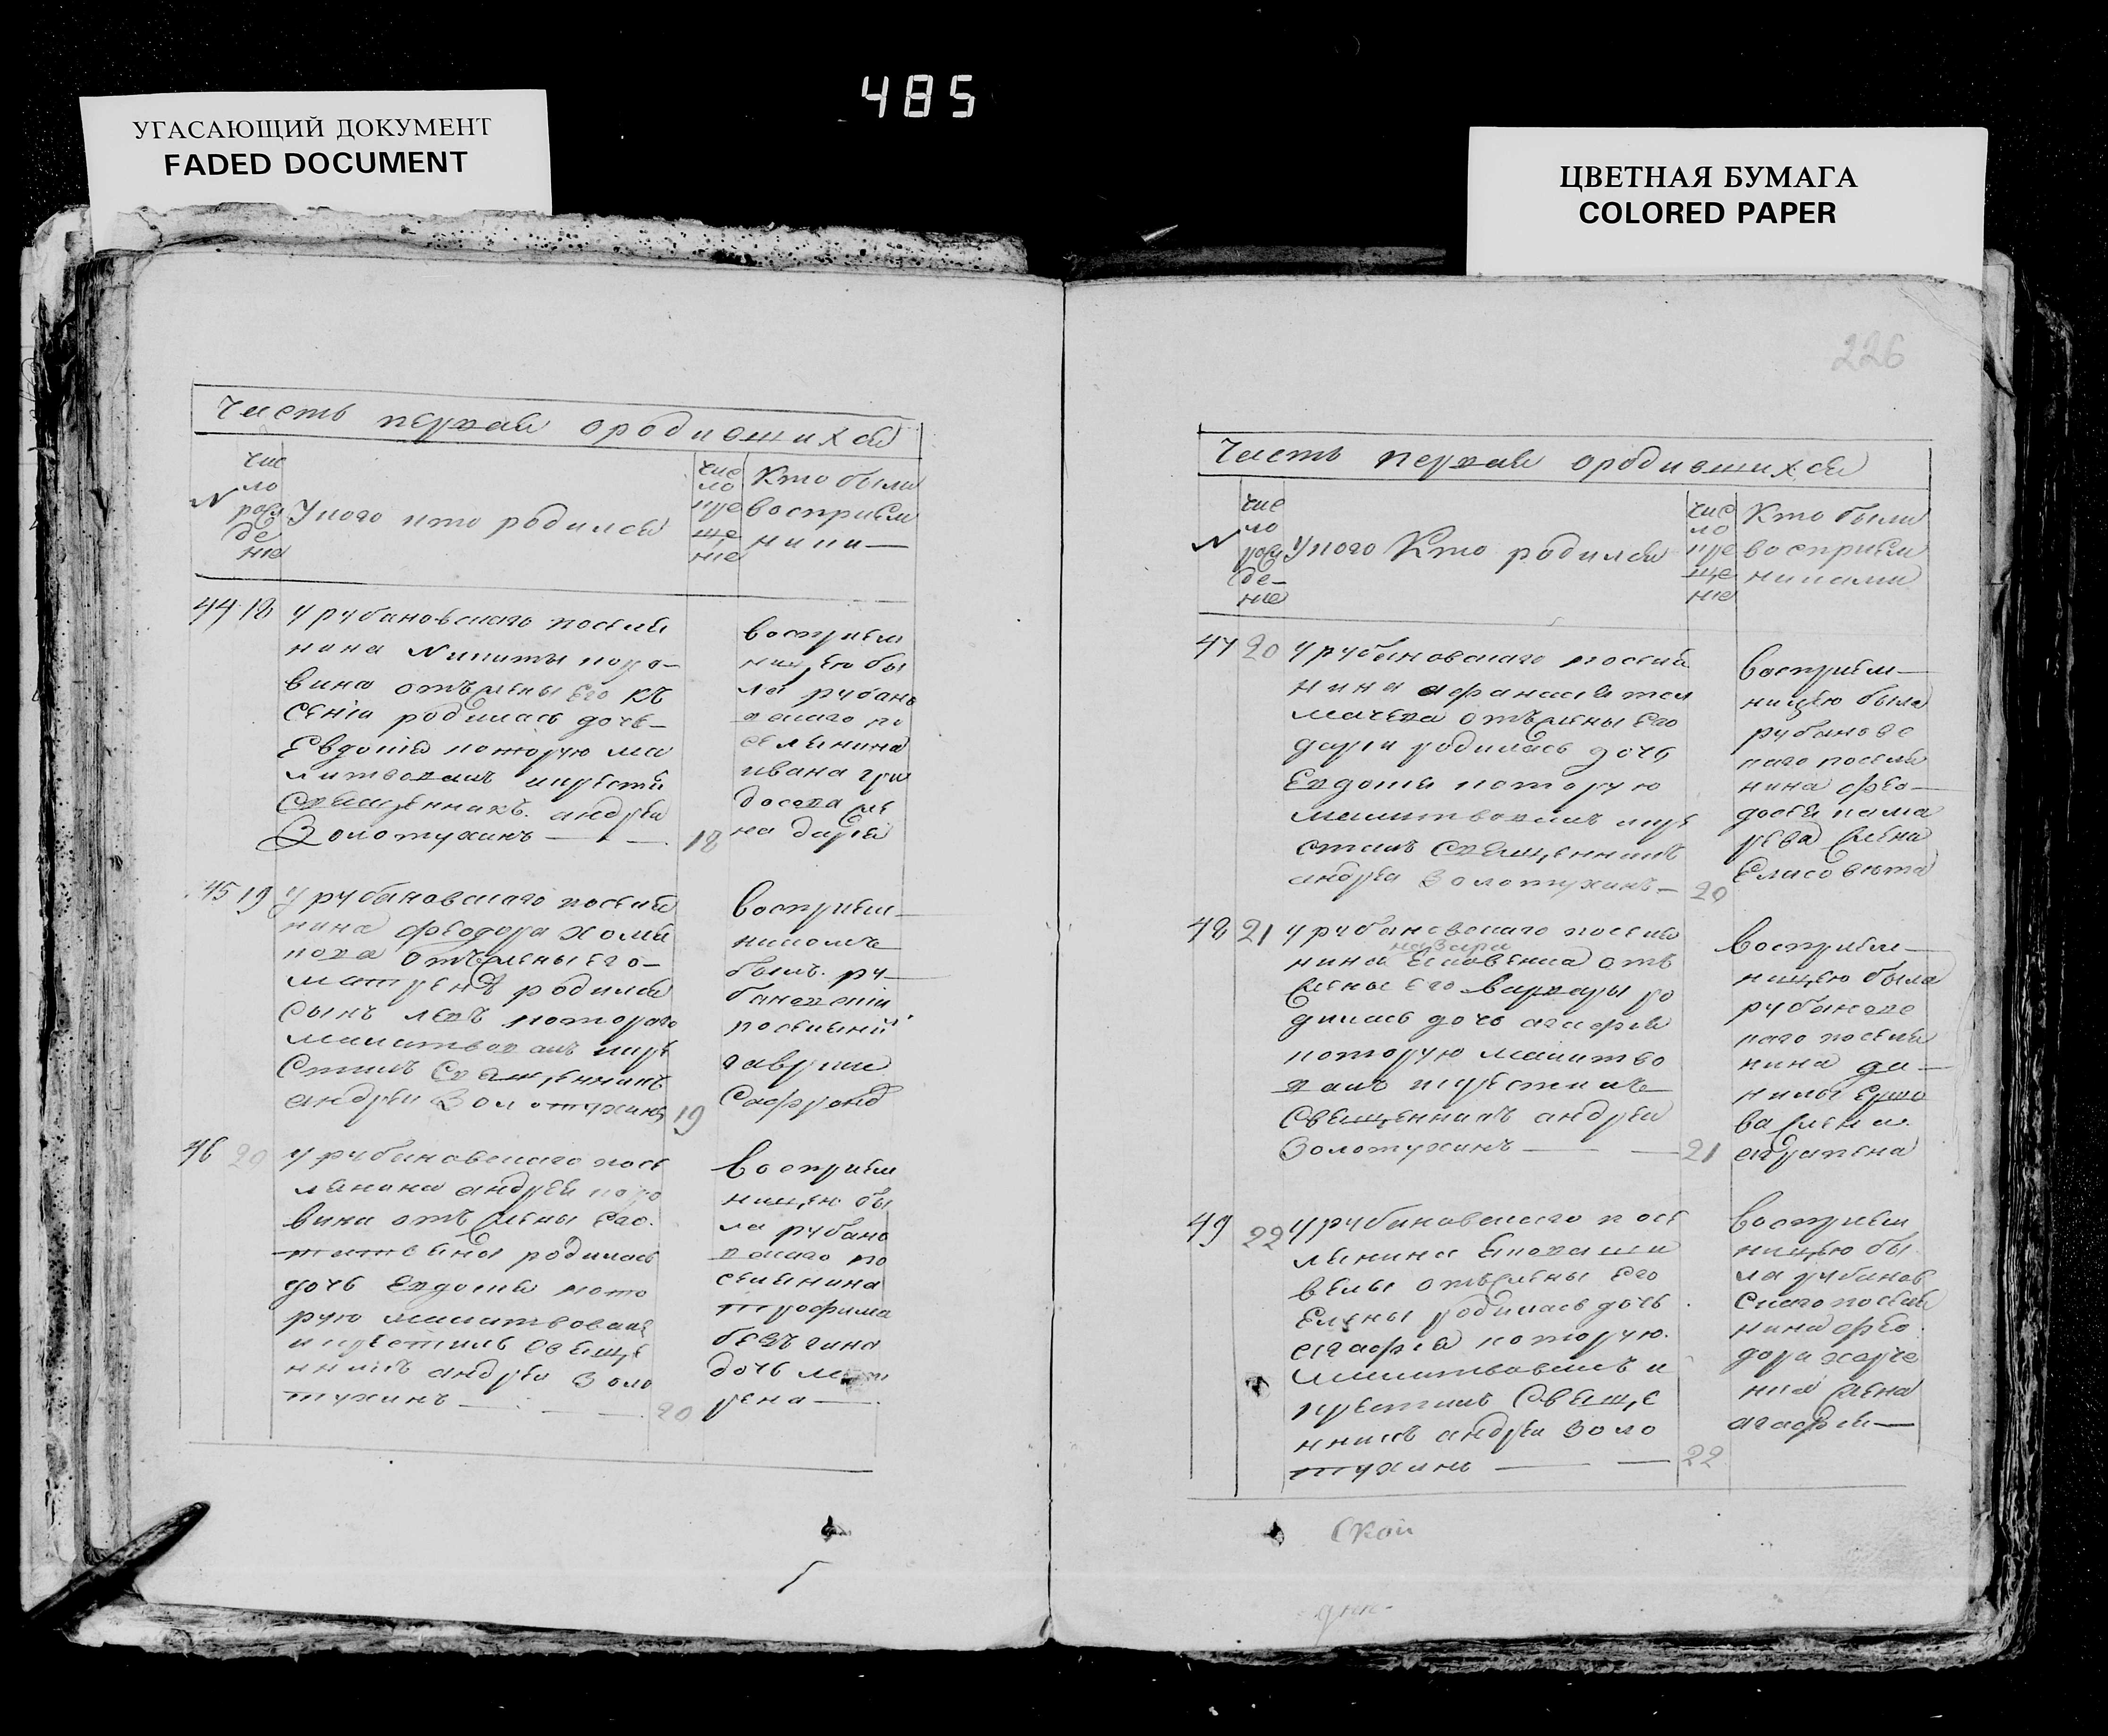 485
УГАСАЮЩИЙ ДОКУМЕНТ
FADED DOCUMENT
ЦВЕТНАЯ БУМАГА
COLORED PAPER
226
Часть первая ородившихся
N
чис
ло
рож
де
ние
Укого кто родился
чис
ло
кре
ще
ние
Кто были
восприем
ники
44 18
у рубановскаго поселя
нина Никиты
вина отъ жены его Кс
сении родилась дочь
Евдокия которую мо
литвовалъ и крести
Священникъ андрей
Золотухинъ
18
восприем
ницею бы
ла рубано
вскаго по
селянина
ивана гри
жe
на дария
45 19
у рубановскаго поселя
нина феодора
отъ жены его
матрены родился
сынъ левъ котораго
молитвовалъ и кре
стилъ Священникъ
андрей Золотухинъ
19
восприем
никомъ
былъ ру
бановский
поселянин
гавриил
Сафронов
46 20
у рубановскаго посе
лянина андрея
вина отъ жены его
татияны родилась
дочь Евдокия кото
рую молитвовалъ
и крестилъ свяще
нникъ андрей Золо
тухинъ
20
восприем
ницею бы
ла рубано
вскаго по
селянина
трофима
дочь
рена
Часть первая ородившихся
N
чис
ло
рож
де
ние
Укого Кто родился
чис
ло
кре
ще
ние
Кто были
восприем
никами
47 20
у рубановскаго поселя
нина афанасия тол
мачева отъ жены его
дарии родилась дочь
Евдокия которую
молитвовалъ и кре
стилъ Священникъ
андрей Золотухинъ
20
восприем
ницею была
рубановс
каго поселя
нина фео
досея
жена
Елисавета
48 21
у рубановскаго поселя
назара
нина отъ
жены его варвары ро
дилась дочь агафия
которую молитво
валъ и крестилъ
Священникъ андрей
Золотухинъ
21
восприем
ницею была
рубановс
каго поселя
нина да
нилы Ершо
ва жена
агрипена
49 22
у рубановскаго посе
лянина
отъ жены его
Елены родилась дочь
агафия которую
молитвовалъ и
крестилъ Свяще
нникъ андрей Золо
тухинъ
22
восприем
ницею бы
ла рубанов
скаго поселя
нина фео
дора харче
жена
агафия
ской